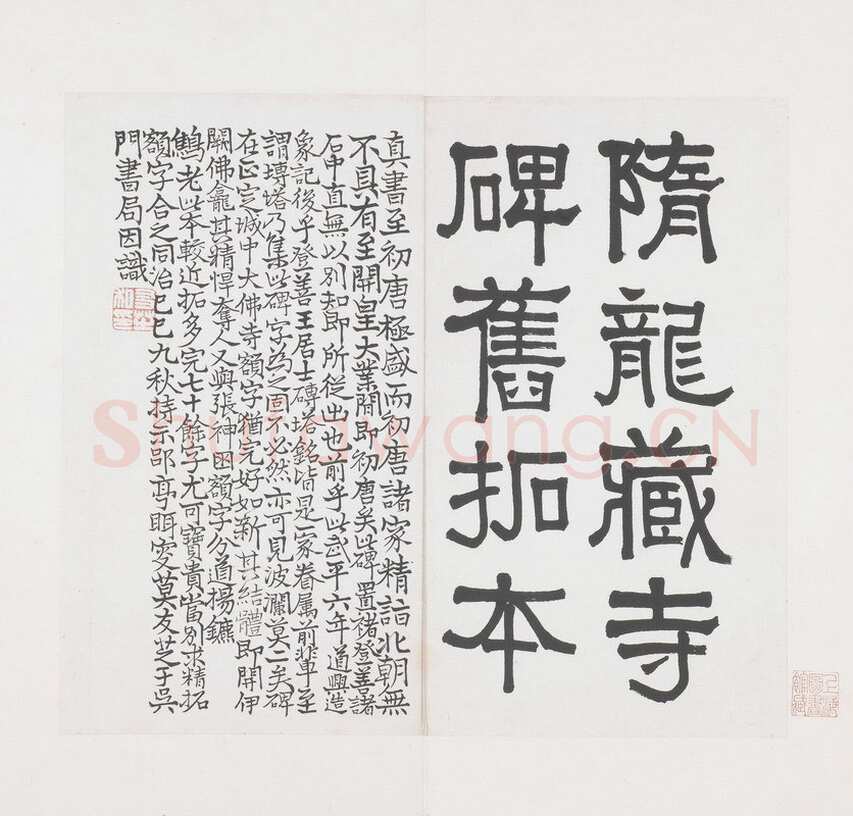 隋龍藏寺
碑舊拓本
真書至初唐極盛而初唐諸家精詣北朝無
不具有至開皇大業間即初唐矣此碑置褚登善諸
石中直無以別知即所從出也前乎此武平六年道興造
象記後乎登善王居士磚塔銘皆是一家眷属前輩至
謂塼塔乃集此碑字為之固不必然亦可見波瀾莫二矣碑
在正定城中大佛寺額字猶完好如新其結體即開伊
闕佛龕其精悍奪人又與張神囧額字分道揚鑣
老此本較近拓多完七十餘字尤可寶貴當別求精拓
額字合之同治己巳九秋持示郘亭眲叟莫友芝于吳
門書局因識
shufawang.CN
上海圖書館藏